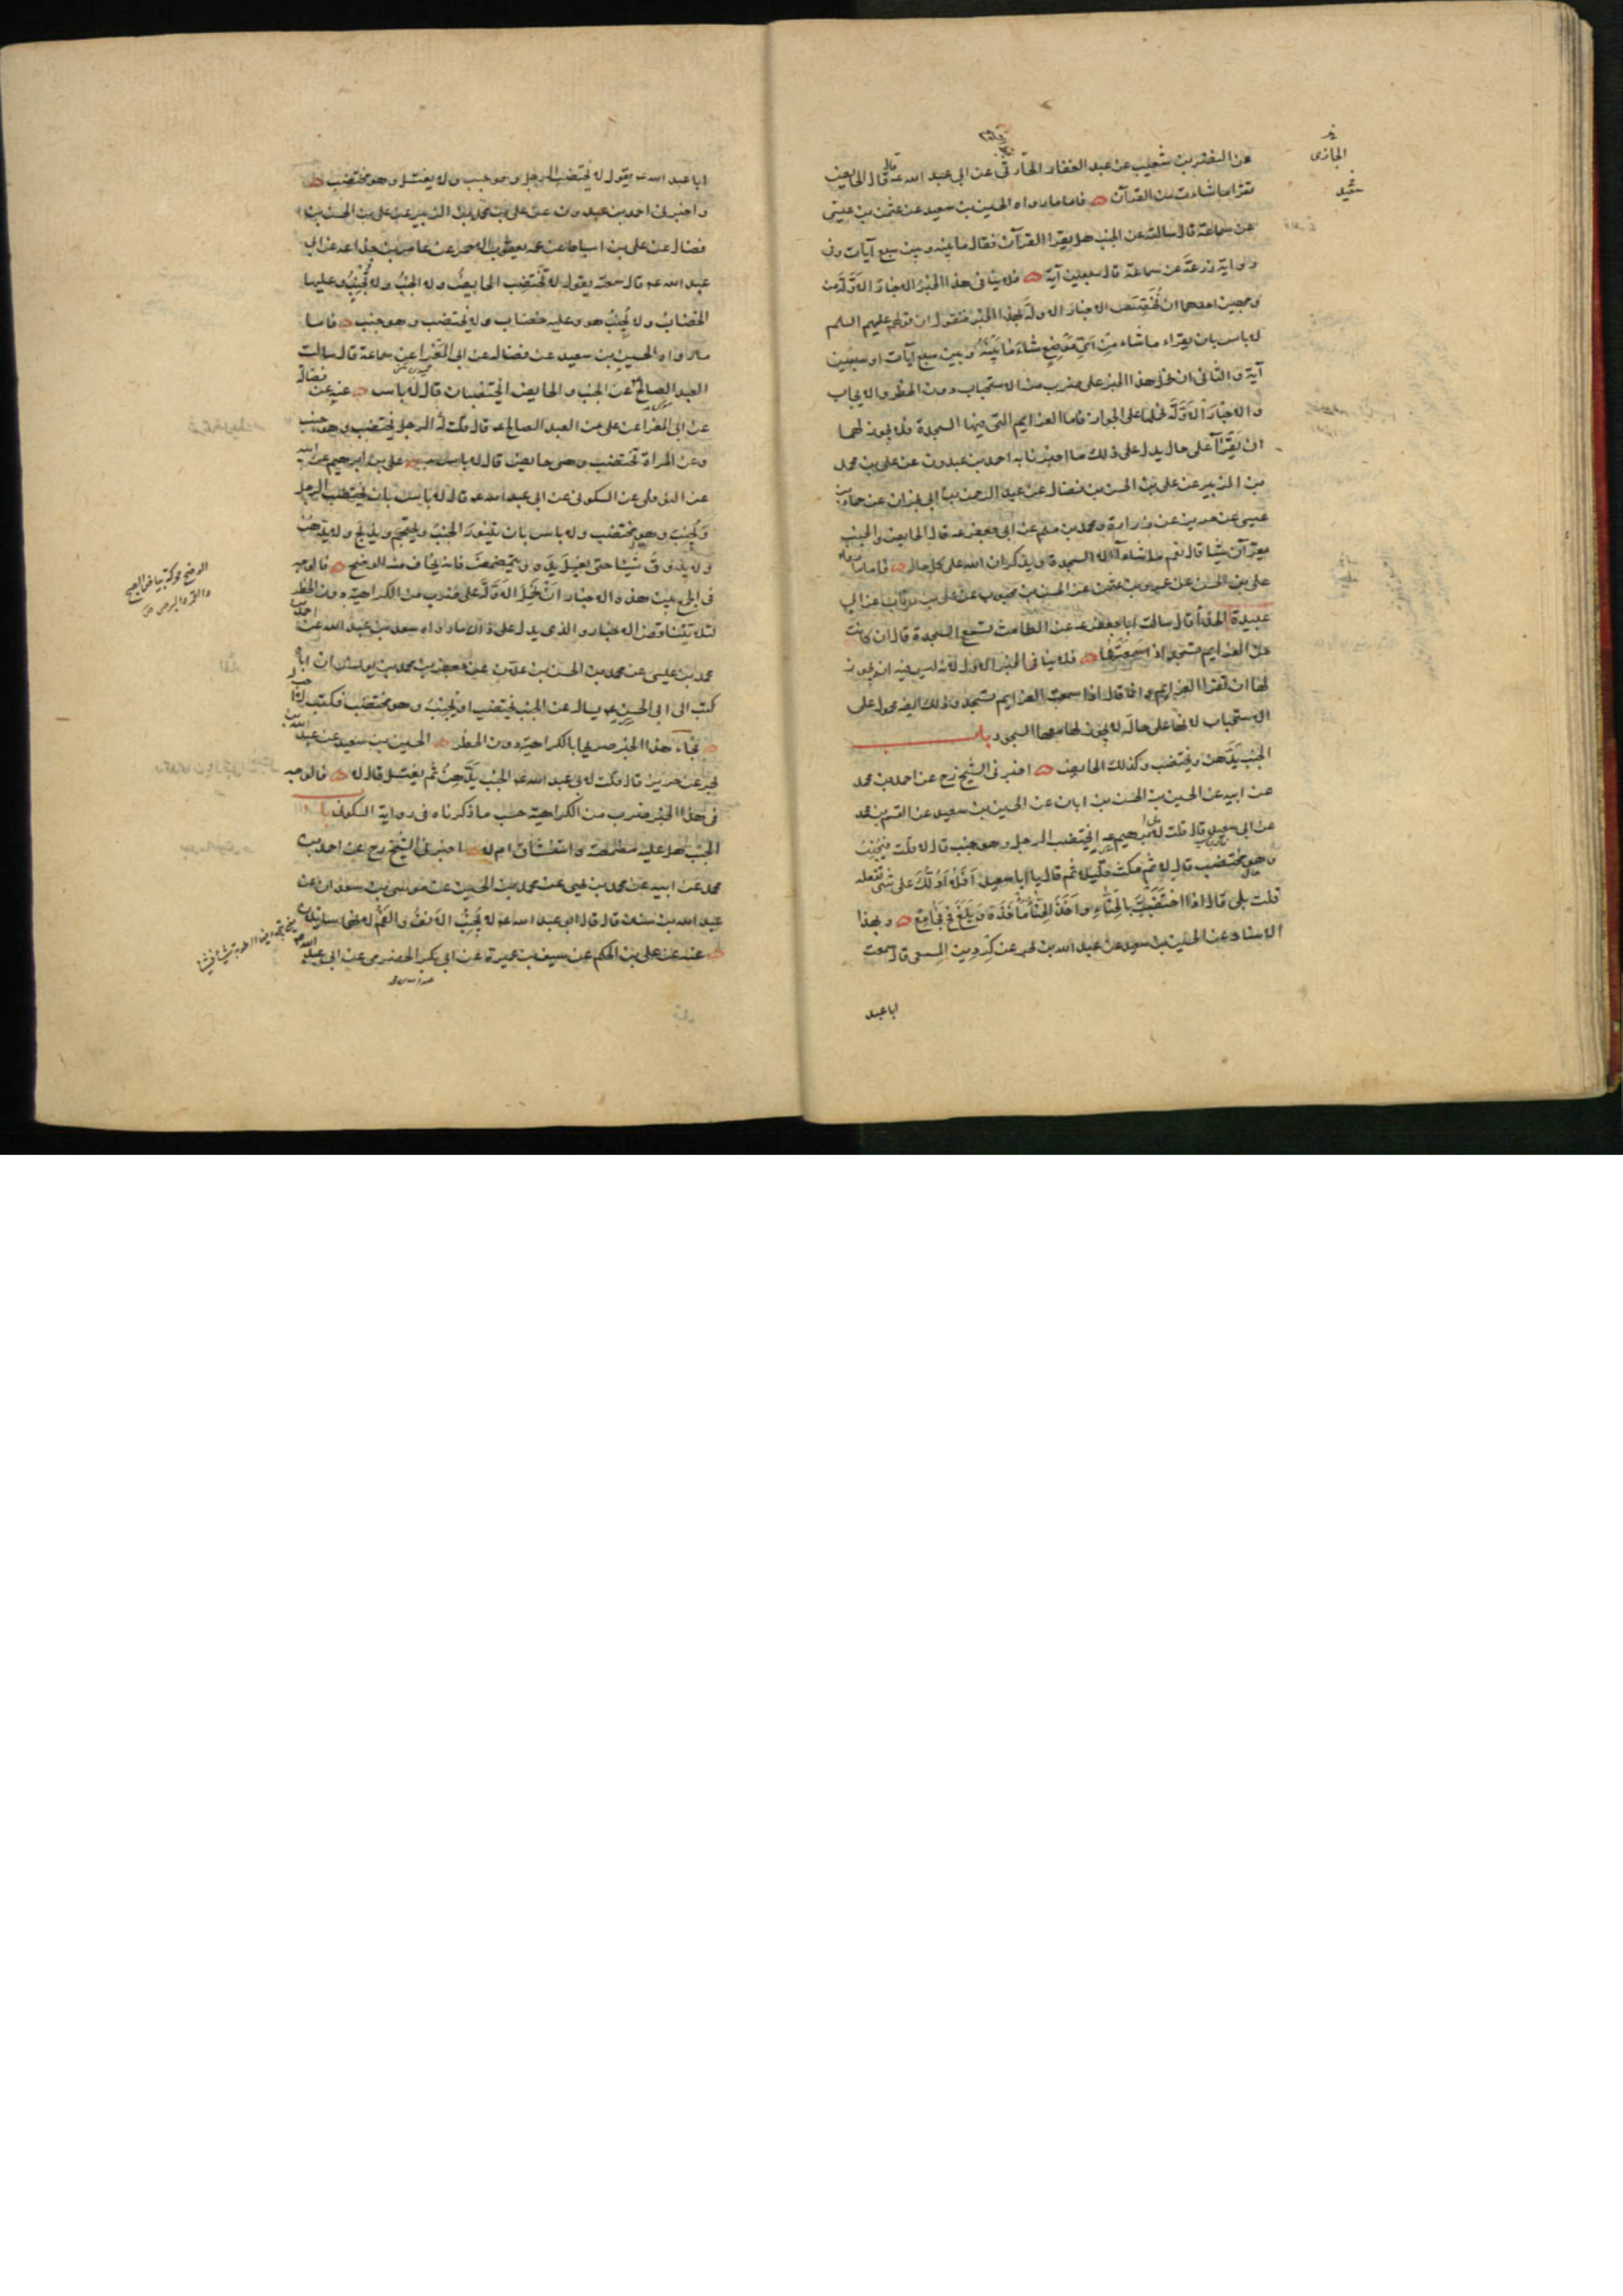 عن النضر بن شعيب عن عبد الغفار الجازى عن ابى عبد الله عه قال الحايض
تقرا ما شاءت من القرآن فاما ما رواه الحسين بن سعيد عن عثمن بن عيسى
عن سماعة قال سالته عن الجنب هل يقرا القرآن فقال ما بينه وبين سبع آيات وفى
رواية زرعة عن سماعة قال سبعين آية فلا ينافى هذا الخبر الاخبار الاولة من
وجهين احدهما ان نخصص الاخبار الاولة بهذا الخبر فنقول ان قولهم عليهم السلم
لا باس بان يقراء ما شاء من اى موضع شاء ما بينه وبين سبع آيات او سبعين
آية والثانى ان نحمل هذا الخبر على ضرب من الاستحباب دون الحظر والايجاب
والاخبار الاولة نحملها على الجواز فاما العزايم التى فيها السجدة فلا يجوز لهما
ان يقرآ على حال يدل على ذلك ما اخبرنا به احمد بن عبدون عن على بن محمد
بن الزبير عن على بن الحسن بن فضال عن عبد الرحمن بن ابى نجران عن حماد بن
عيسى عن حريز عن زرارة ومحمد بن مسلم عن ابى جعفر عه قال الحايض والجنب
يقرآن شيئا قال نعم ما شاءآ الا السجدة ويذكران الله على كل حال فاما ما رواه
على بن الحسن عن عمرو بن عثمن عن الحسن بن محبوب عن على بن رئاب عن ابى
عبيدة الحذاء قال سالت ابا جعفر عه عن الطامث تسمع السجدة قال ان كانت
من العزايم تسجد اذا سمعتها فلا ينافى الخبر الاول لانه ليس فيه انه يجوز
لها ان تقرا العزايم وانما قال اذا سمعت العزايم تسجد وذلك ايضا محمول على
الاستحباب لانها على حال لا يجوز لها معها السجود باب
الجنب يدهن ويختضب وكذلك الحايض اخبرنى الشيخ رح عن احمد بن محمد
عن ابيه عن الحسين بن الحسن بن ابان عن الحسين بن سعيد عن القسم بن محمد
عن ابى سعيد قال قلت لابى ابرهيم عه ايختضب الرجل وهو جنب قال لا قلت فيجنب
وهو مختضب قال لا ثم مكث قليلا ثم قال يا ابا سعيد افلا ادلك على شئ تفعله
قلت بلى قال اذا اختضبت بالحناء واخذ الحناء ماخذه وبلغ فح فجامع وبهذا
الاسناد عن الحسين بن سعيد عن عبد الله بن بحر عن كردين المسمعى قال سمعت
ابا عبد
الجازى
ابا عبد الله عه يقول لا يختضب الرجل وهو جنب ولا يغتسل وهو مختضب
واخبرنى احمد بن عبدون عن على بن محمد بن الزبير عن على بن الحسن بن
فضال عن على بن اسباط عن عمه يعقوب الاحمر عن عامر بن جذاعة عن ابى
عبد الله عه قال سمعته يقول لا تختضب الحايض ولا الجنب ولا تجنب وعليها
الخضاب ولا يجنب هو وعليه خضاب ولا يختضب وهو جنب فاما
ما رواه الحسين بن سعيد عن فضالة عن ابى المغرا عن سماعة قال سالت
العبد الصالح عن الجنب والحايض ايختضبان قال لا باس عنه عن فضالة
عن ابى المغرا عن على عن العبد الصالح عه قال قلت له الرجل يختضب وهو جنب
وعن المراة تختضب وهى حايض قال لا باس على بن ابرهيم عن
عن النوفلى عن السكونى عن ابى عبد الله عه قال لا باس بان يختضب الرجل
ويجنب وهو مختضب ولا باس بان يتنور الجنب ويحتجم ويذبح ولا يدهن
ولا يذوق شيئا حتى يغسل يديه ويتمضمض فانه يخاف منه الوضح فالوجه
فى الجمع بين هذه الاخبار ان نحمل الاولة على ضرب من الكراهية دون الحظر
لئلا تتناقض الاخبار والذى يدل على ذلك ما رواه سعد بن عبد الله عن احمد بن
محمد بن عيسى عن محمد بن الحسن بن علان عن جعفر بن محمد بن يونس ان اباه
كتب الى ابى الحسن عه يساله عن الجنب يختضب او يجنب وهو مختضب فكتب لا احب له
فجاء هذا الخبر صريحا بالكراهية دون الحظر الحسين بن سعيد عن عبد الله بن
بحر عن حريز قال قلت لابى عبد الله عه الجنب يدهن ثم يغتسل قال لا فالوجه
فى هذا الخبر ضرب من الكراهية حسب ما ذكرناه فى رواية السكونى باب
الجنب هل عليه مضمضة واستنشاق ام لا اخبرنى الشيخ رح عن احمد بن
محمد عن ابيه عن محمد بن يحيى عن محمد بن الحسين عن موسى بن سعدان عن
عبد الله بن سنان قال قال ابو عبد الله عه لا يجنب الانف والفم لانهما سايلان
عنه عن على بن الحكم عن سيف بن عميرة عن ابى بكر الحضرمى عن ابى عبد الله
الوضح محركة بياض الصبح
والقمر والبرص